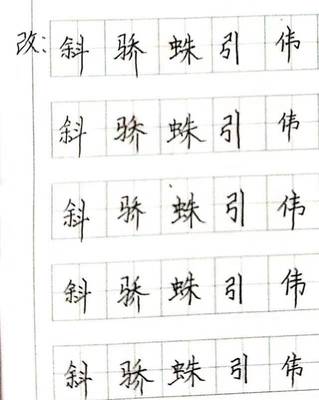 改：斜骄蛛引伟
斜骄蛛引伟
斜骄蛛引伟
斜骄蛛引伟
斜骄蛛引伟